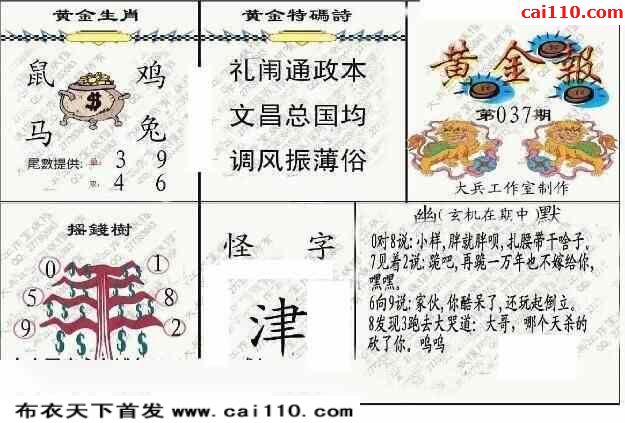 cai110.com
黄金生肖
鼠 鸡
马 兔
尾數提供: 单: 3 9
双: 4 6
黄金特碼詩
礼闹通政本
文昌总国均
调风振薄俗
黄金報
第037期
大兵工作室制作
摇錢樹
0 1
5 8
9 2
怪 字
津
幽(玄机在期中)默
0对8说:小样,胖就胖呗,扎腰带干啥子。
7见着2说:跪吧,再跪一万年也不嫁给你,
嘿嘿。
6向9说:家伙,你酷呆了,还玩起倒立。
8发现3跑去大哭道:大哥,哪个天杀的
砍了你。呜呜
布衣天下首发 www.cai110.com